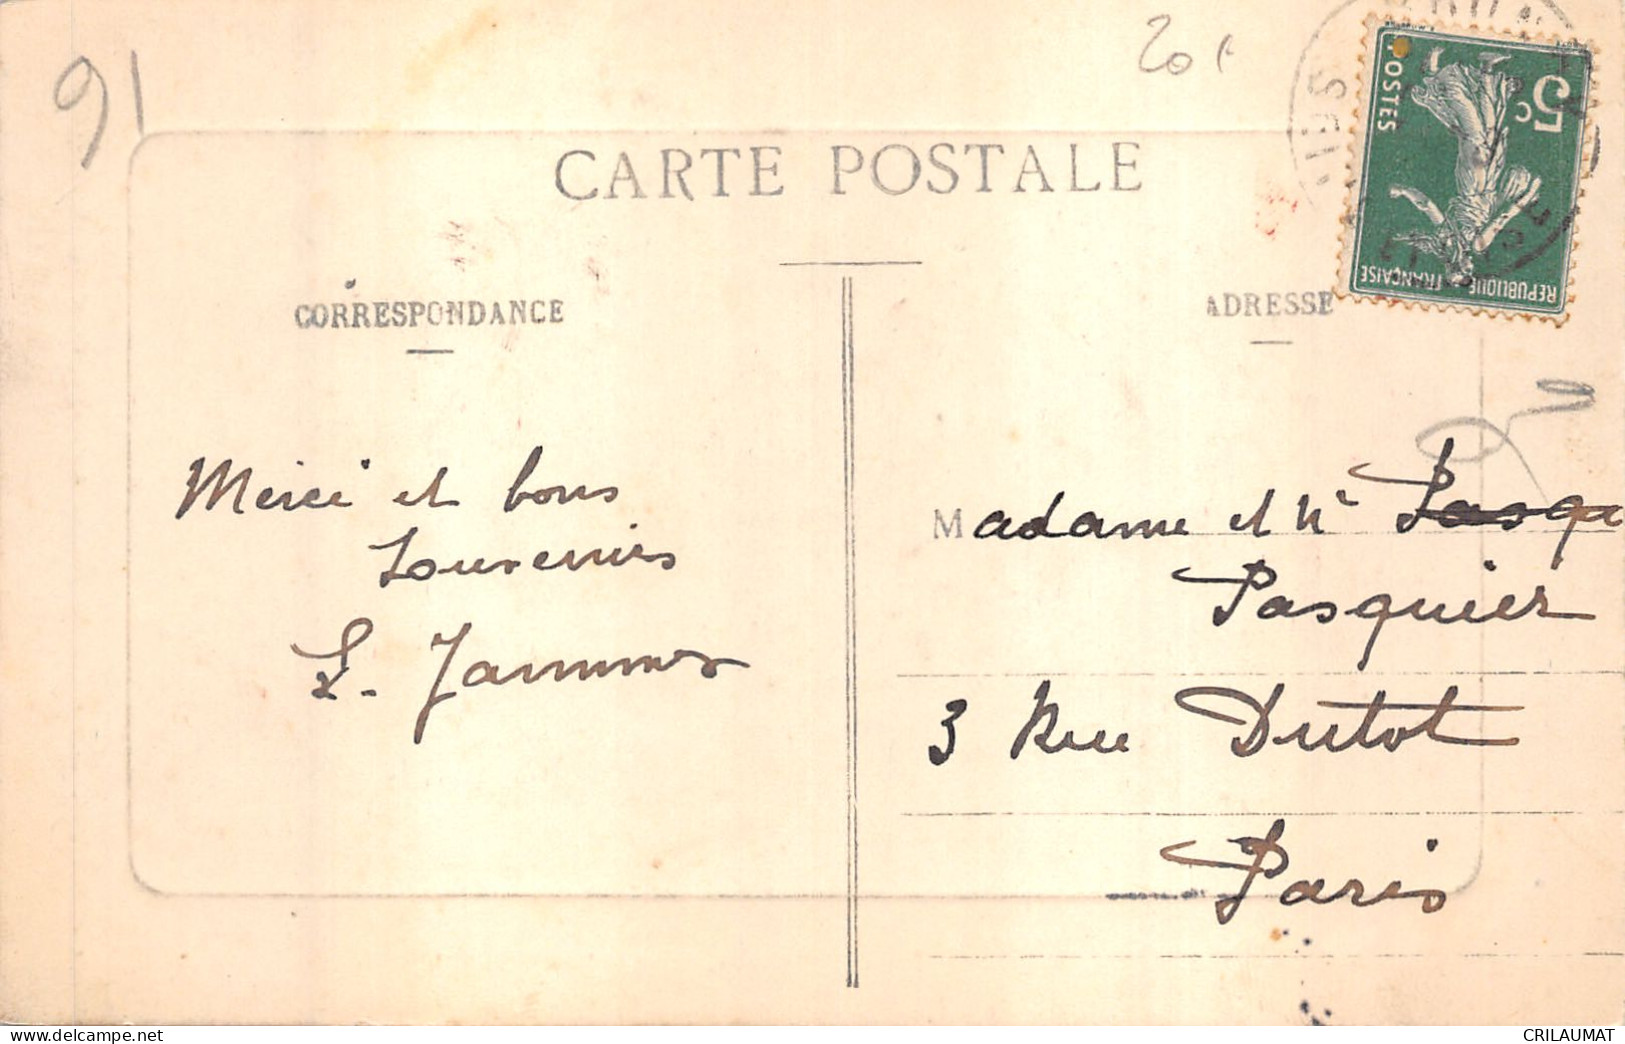 91
20f
CARTE POSTALE
5c
POSTES
REPUBLIQUE FRANÇAISE
CORRESPONDANCE
ADRESSE
Merci et bons
souvenirs
L. Jammes
Madame et Mr Pasqu
Pasquier
3 Rue Dutot
Paris
CRILAUMAT